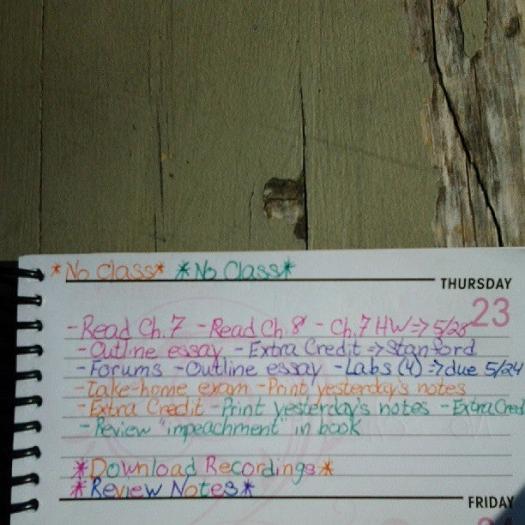 *No Class* *No Class*
THURSDAY
23
-Read Ch.7 -Read Ch.8 -Ch.7 HW=>5/28
-Outline essay -Extra Credit =>Stanford
-Forums -Outline essay -Labs (4) =>due 5/24
-Take-home exam -Print yesterday's notes
-Extra Credit -Print yesterday's notes -Extra Cred
-Review "impeachment" in book
*Download Recordings*
*Review Notes*
FRIDAY